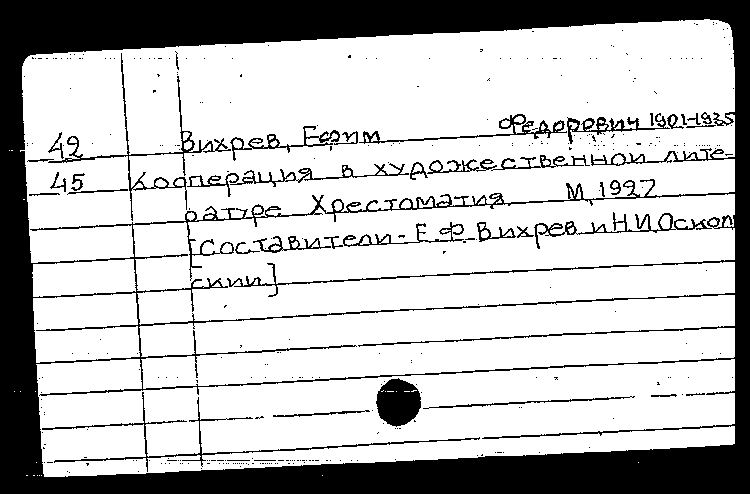 42 Вихрев, Ефим Федорович 1901-1935
45 Кооперация в художественной лите-
ратуре Хрестоматия М, 1927
[Составители - Е.Ф Вихрев и Н.И.Оскол
ский]